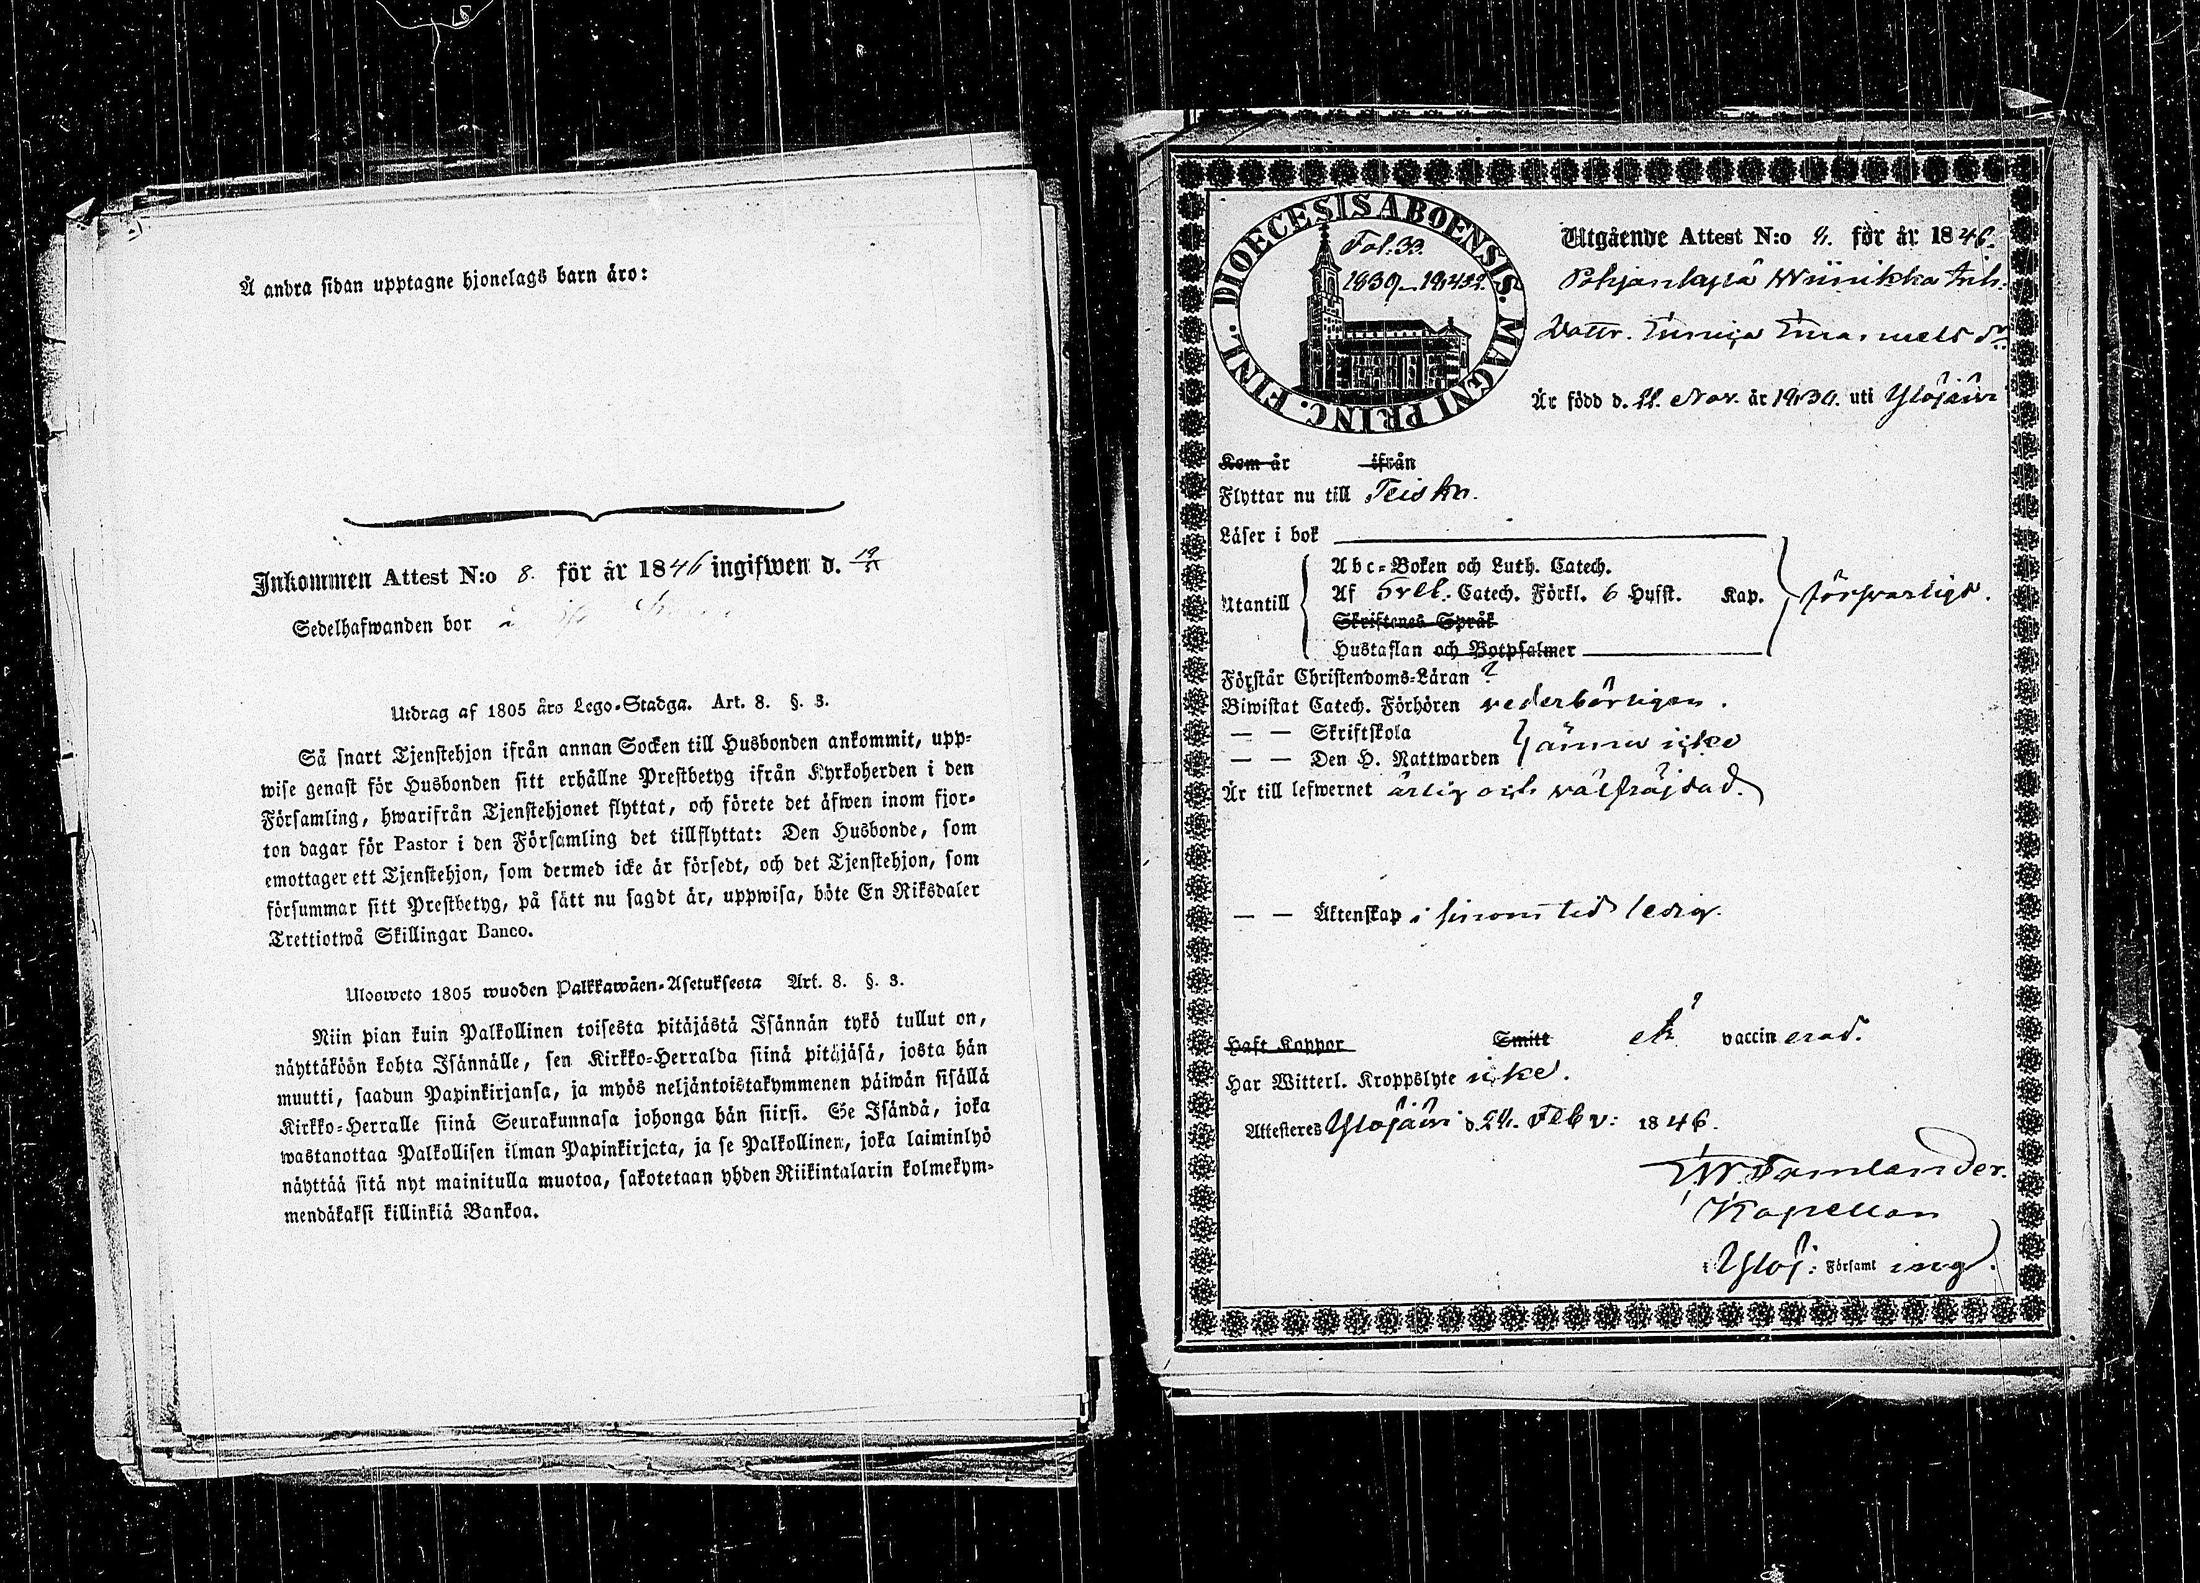 Å andra sidan upptagne hjonelags barn äro:
Inkommen Attest N:o 8. för år 1846 ingifwen d. 19/
Sedelhafwanden bor
Utdrag af 1805 års Lego-Stadga. Art. 8. §. 3.
Så snart Tjenstehjon ifrån annan Socken till Husbonden ankommit, upp-
wise genast för Husbonden sitt erhållne Prestbetyg ifrån Kyrkoherden i den
Församling, hwarifrån Tjenstehjonet flyttat, och förete det äfwen inom fjor-
ton dagar för Pastor i den Församling det tillflyttat: Den Husbonde, som
emottager ett Tjenstehjon, som dermed icke är försedt, och det Tjenstehjon, som
försummar sitt Prestbetyg, på sätt nu sagdt är, uppwisa, böte En Riksdaler
Trettiotwå Skillingar Banco.
Ulosweto 1805 wuoden Palkkawäen-Asetuksesta Art. 8. §. 3.
Niin pian kuin Palkollinen toisesta pitäjästä Isännän tykö tullut on,
näyttäköön kohta Isännälle, sen Kirkko-Herralda siinä pitäjäsä, josta hän
muutti, saadun Papinkirjansa, ja myös neljäntoistakymmenen päiwän sisällä
Kirkko-Herralle siinä Seurakunnasa johonga hän siirsi. Se Isändä, joka
wastanottaa Palkollisen ilman Papinkirjata, ja se Palkollinen, joka laiminlyö
näyttää sitä nyt mainitulla muotoa, sakotetaan yhden Riikintalarin kolmekym-
mendäkaksi killinkiä Bankoa.
DIOECESIS ABOENSIS. MAGNI PRINC. FINL.
Fol. 33.
Utgående Attest N:o för år 1846.
Wiinikka
Dottr.
Är född d. 22. Nov. år 1830. uti Ylöjärvi
Kom år ifrån
Flyttar nu till Teisko.
Läser i bok
Utantill
Abc-Boken och Luth. Catech.
Af Svel. Catech. Förkl. 6 Hufst. Kap. försvarligt.
Skriftenes Språk
Hustaflan och Botpsalmer
Förstår Christendoms-Läran ?
Biwistat Catech. Förhören vederbörligen.
— — Skriftskola
— — Den H. Nattwarden ännu icke
Är till lefwernet ärlig och välfräjdad.
— — Äktenskap i sinom tid ledig.
Haft Koppor Smitt vaccinerad.
Har Witterl. Kroppslyte icke.
Attesteres Ylöjärvi d. 24. Febr: 1846.
Kapellan
i Ylöj: Församling.